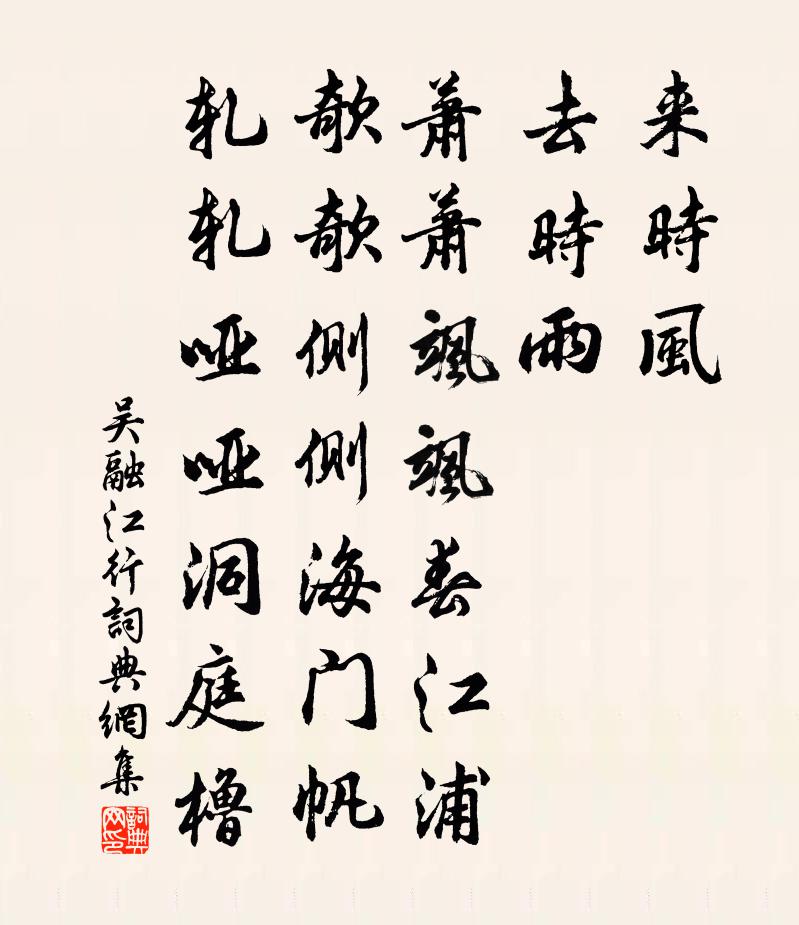 来時風
去時雨
蕭蕭颯颯春江浦
欹欹側側海门帆
軋軋啞啞洞庭櫓
吴融江行詞典網集
詞典網印